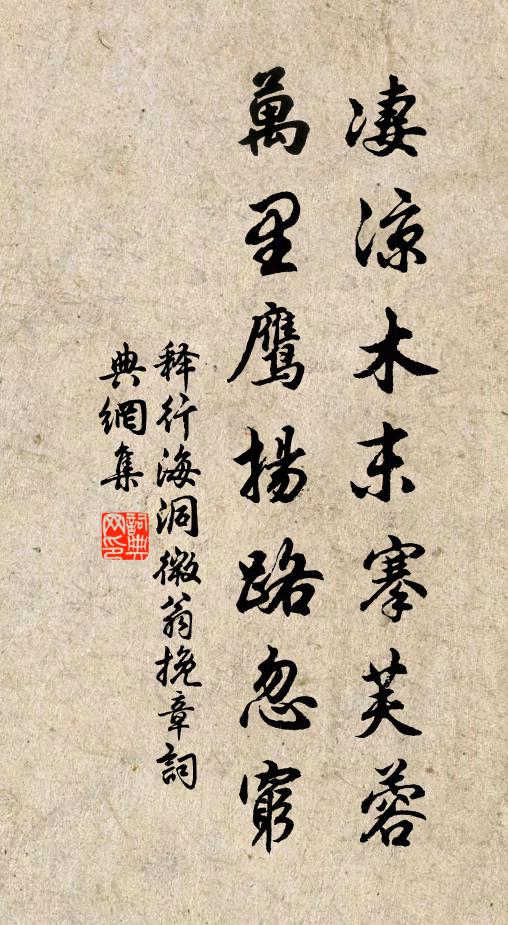 凄涼木末搴芙蓉
萬里鷹揚路忽窮
释行海洞微翁挽章詞
典網集
詞典网印